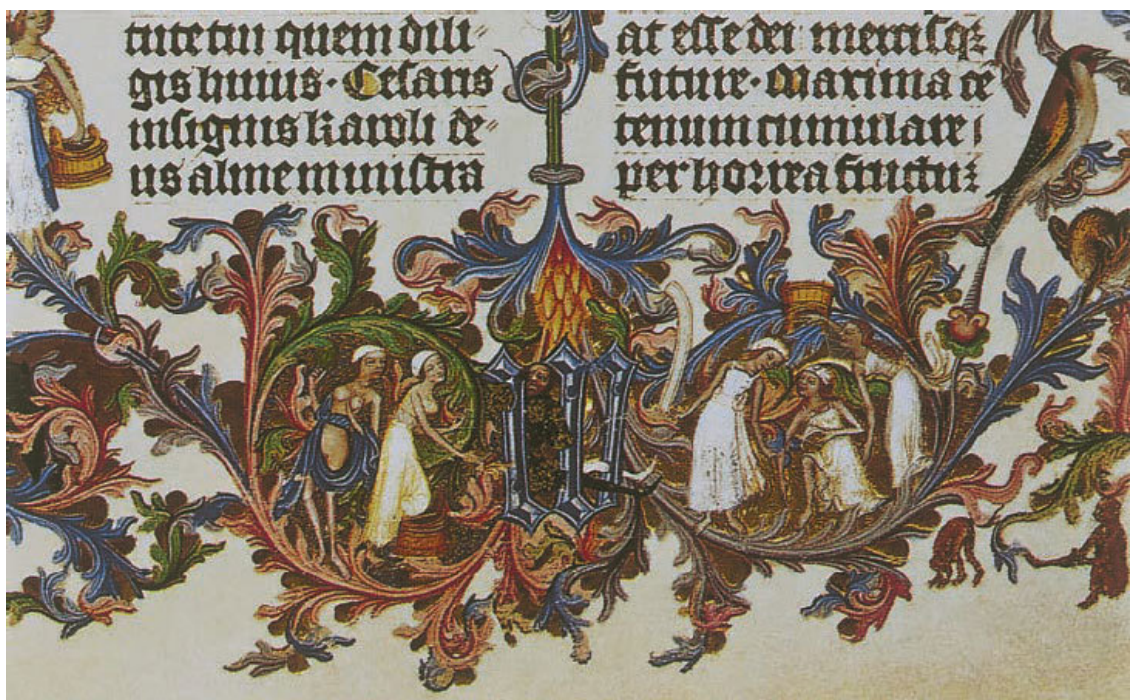 tutetui quem dili-
gis huius · Cesaris
insignis karoli de-
us alme ministra
at esse dei mercisqꝫ
future · Maxima cē
tenum cumulare
per horrea fructuꝫ